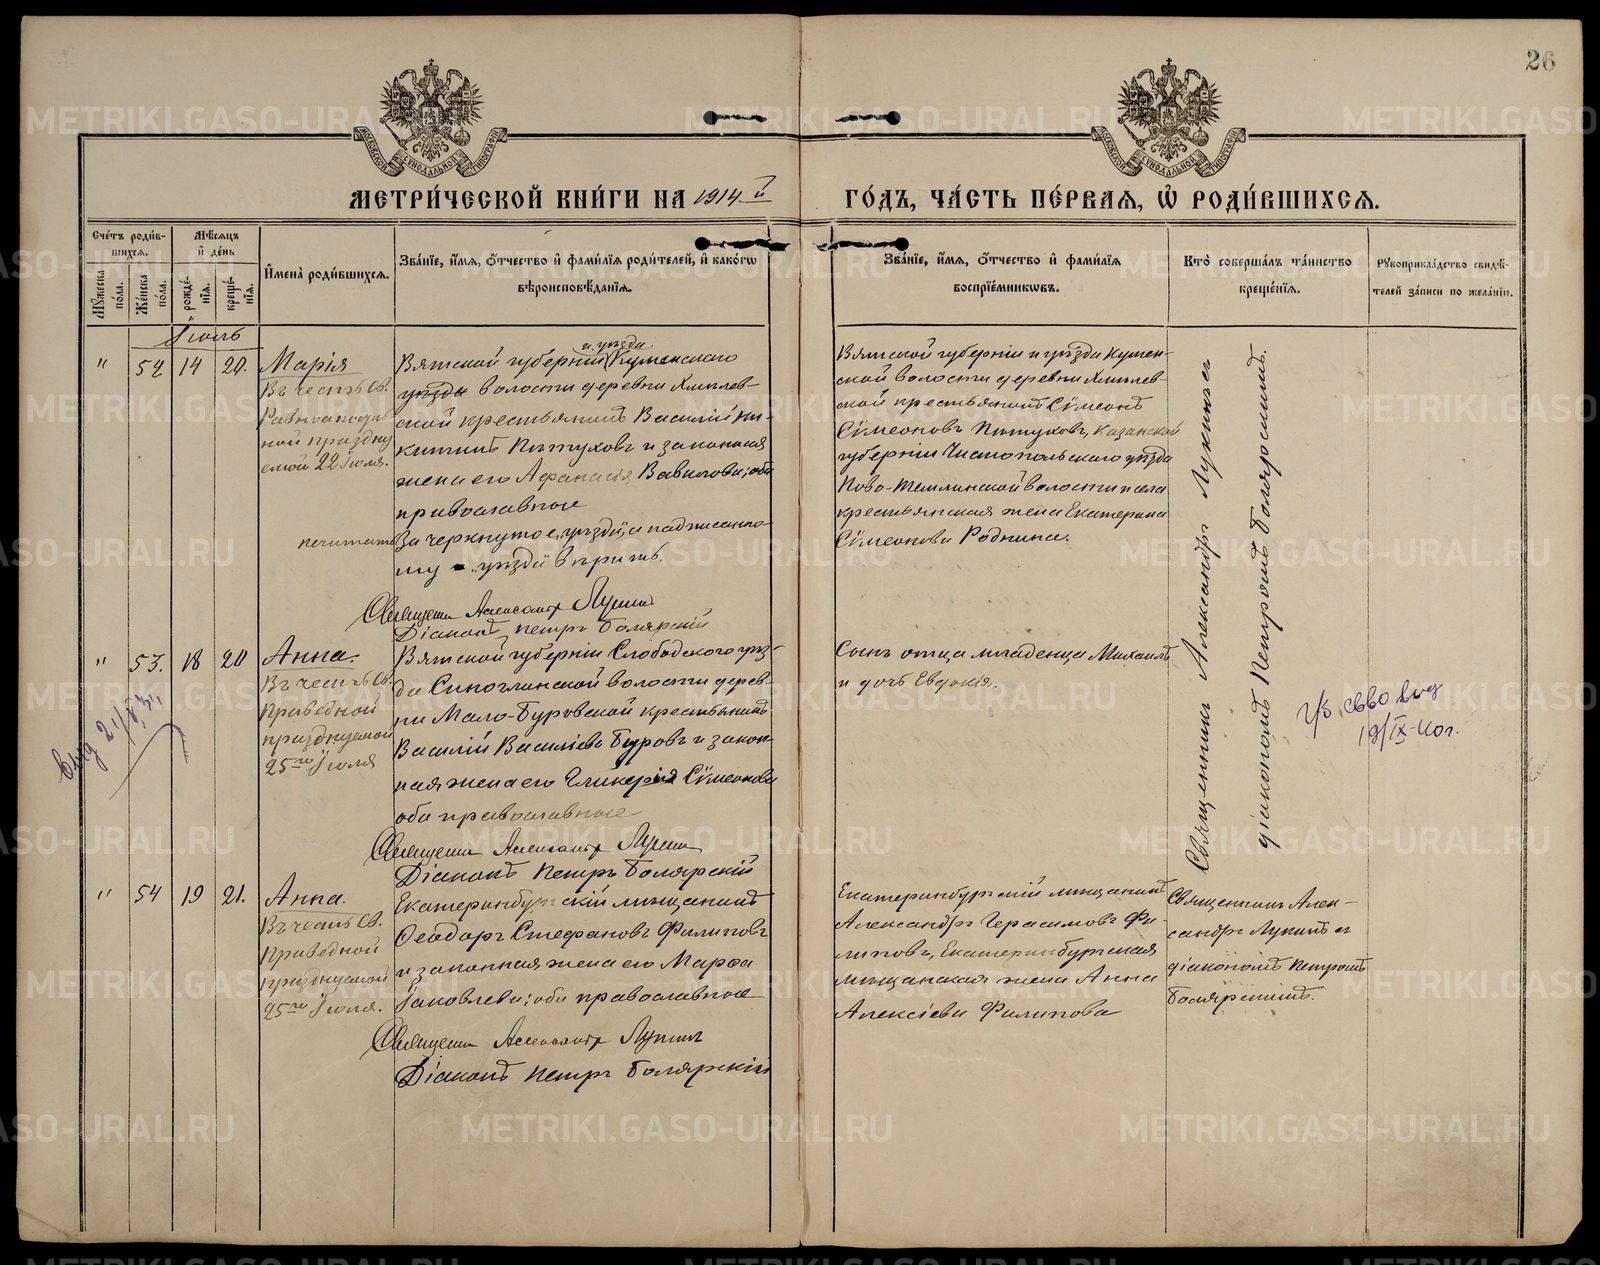 26
МОСКОВСКОЙ СѴНОДАЛЬНОЙ ТИПОГРАФІИ
МОСКОВСКОЙ СѴНОДАЛЬНОЙ ТИПОГРАФІИ
МЕТРИ́ЧЕСКОЙ КНИ́ГИ НА 1914 й
ГО́ДЪ, ЧА́СТЬ ПЕ́РВАЯ, Ѡ҆ РОДИ́ВШИХСЯ.
Сче́тъ роди́в-
шихся.
Мѣ́сяцъ
и҆ де́нь
Мꙋ́жеска по́ла.
Же́нска по́ла.
рожде́-
нїя.
креще́-
нїя.
И҆мена̀ роди́вшихся.
Зва́нїе, и҆́мя, ѻ҆́тчество и҆ фами́лїя роди́телей, и҆ како́гѡ
вѣроисповѣ́данїя.
Зва́нїе, и҆́мя, ѻ҆́тчество и҆ фами́лїя
воспрїе́мникѡвъ.
Кто̀ соверша́лъ та́инство
креще́нїя.
Рꙋкоприкла́дство свидѣ́-
телей за́писи по жела́нїю.
Іюль
" 52 14 20. Марія
Въ честь Св.
Равноапостоль
ной праздну
емой 22 Іюля.
и уѣзда
Вятской губерніи Куменскаго
уѣзда волости деревни Хмелев-
ской крестьянинъ Василій Ни-
китинъ Пѣтуховъ и законная
жена его Афанасія Вавилова; оба
православные
Зачеркнутое „уѣзда“, а надписанно-
му „уѣзда“ вѣрить.
Священн. Александръ Лукинъ
Діаконъ Петръ Боляркій
Вятской губерніи и уѣзда Кумен-
ской волости деревни Хмелев-
ской крестьянинъ Сѵмеонъ
Сѵмеоновъ Пѣтуховъ, Казанской
губерніи Чистопольскаго уѣзда
волости села
крестьянская жена Екатерина
Сѵмеонова Роднина.
Священникъ Александръ Лукинъ съ
діакономъ Петромъ Болярскимъ.
" 53. 18 20 Анна.
Въ честь Св.
Праведной
празднуемой
25го Іюля
Вятской губерніи Слободского уѣз-
да волости дерев-
ни Мало-Буровской крестьянинъ
Василій Василіевъ Буровъ и закон-
ная жена его Гликерія Сѵмеонова
оба православные
Священн. Александръ Лукинъ
Діаконъ Петръ Болярскій
Сынъ отца младенца Михаилъ
и дочь Евдокія.
" 54 19 21. Анна.
Въ честь Св.
Праведной
празднуемой
25го Іюля.
Екатеринбургскій мѣщанинъ
Ѳеодоръ Стефановъ Филиповъ
и законная жена его Марѳа
Іаковлева; оба православные
Священн. Александръ Лукинъ
Діаконъ Петръ Болярскій
Екатеринбургскій мѣщанинъ
Александръ Герасимовъ Фи-
липовъ, Екатеринбургская
мѣщанская жена Анна
Алексіева Филипова
Священникъ Алек-
сандръ Лукинъ съ
діакономъ Петромъ
Болярскимъ.
METRIKI.GASO-URAL.RU